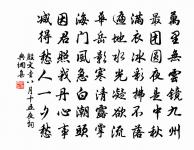 萬里無雲鏡九州
最團圓夜是中秋
滿衣冰彩拂不落
遍地水光凝欲流
華岳影寒清露掌
海門風急白潮頭
因君照我丹心事
減得愁人一夕愁
殷文圭八月十五夜